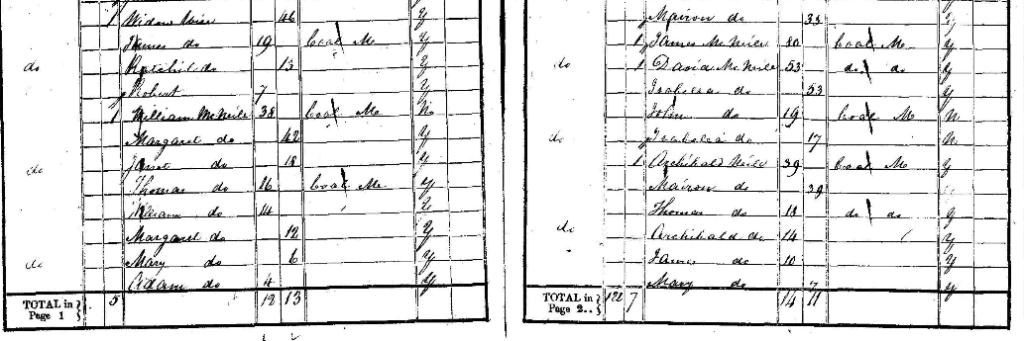 1 Widow Weir 46 y
James do 19 Coal M. y
do Ratchel do 13 y
Robert 7 y
1 William McNeile 38 Coal M. N
Margaret do 42 y
do Janet do 18 y
Thomas do 16 Coal M. y
do 14 y
Margaret do 12 y
do Mary do 6 y
Adam do 4 y
TOTAL in Page 1 } 5 12 13
Mairon do 38 y
1 James McNeile Coal M. y
do 1 David McNeile 53 do do y
Isabella do 53 y
John do 19 Coal M N
do Isabella do 17 N
1 Archibald Neile 39 Coal M y
Mairon do 39
Thomas do 18 do do y
do Archibald do 14 y
James do 10 y
Mary do 7 y
TOTAL in Page 2.. } 7 14 11